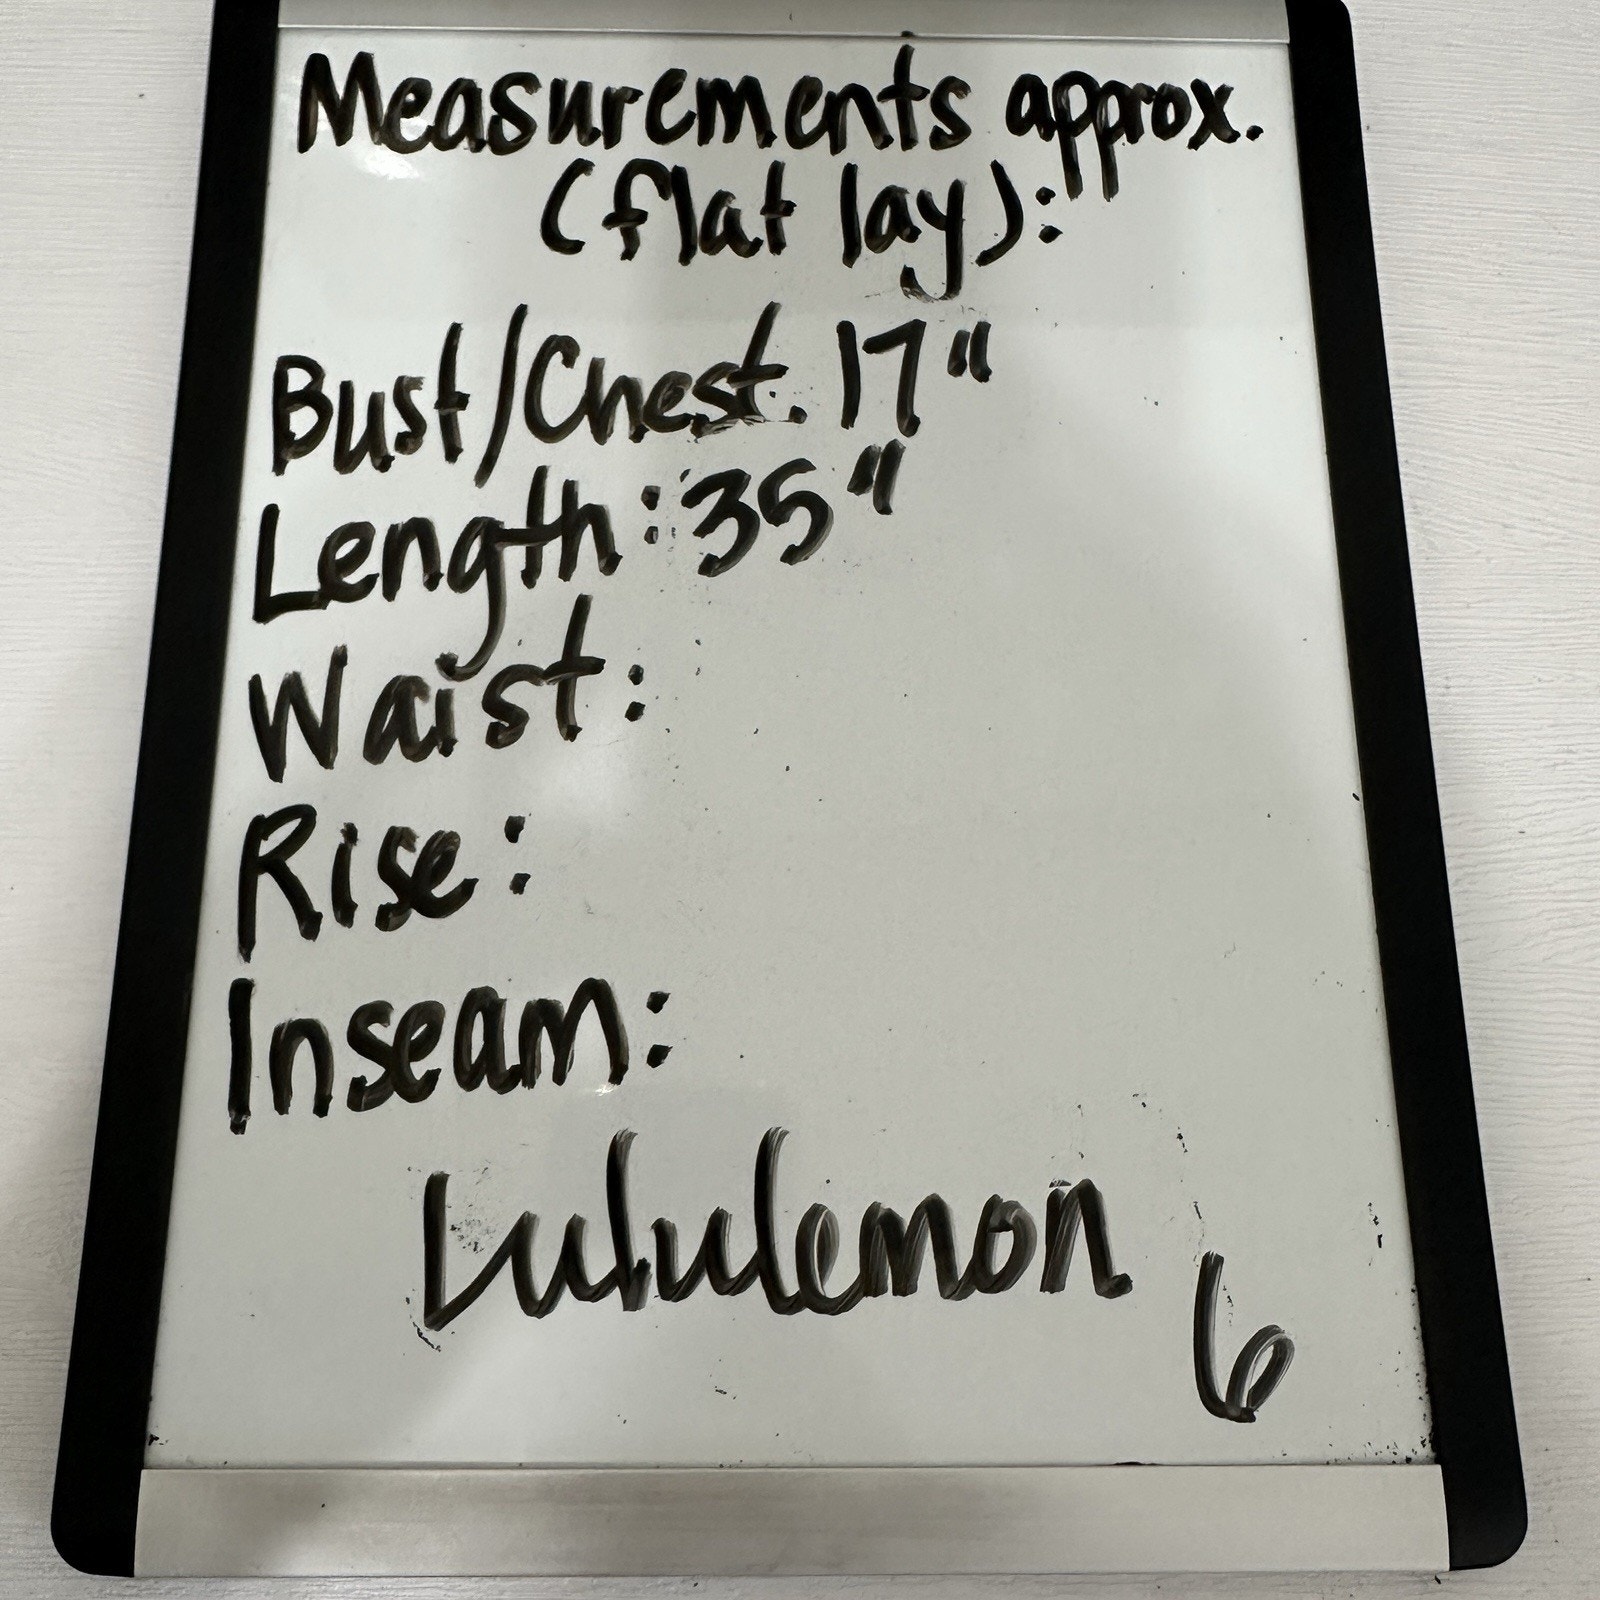 Measurements approx.
(flat lay):
Bust/Chest. 17"
Length: 35"
Waist:
Rise:
Inseam:
Lululemon
6